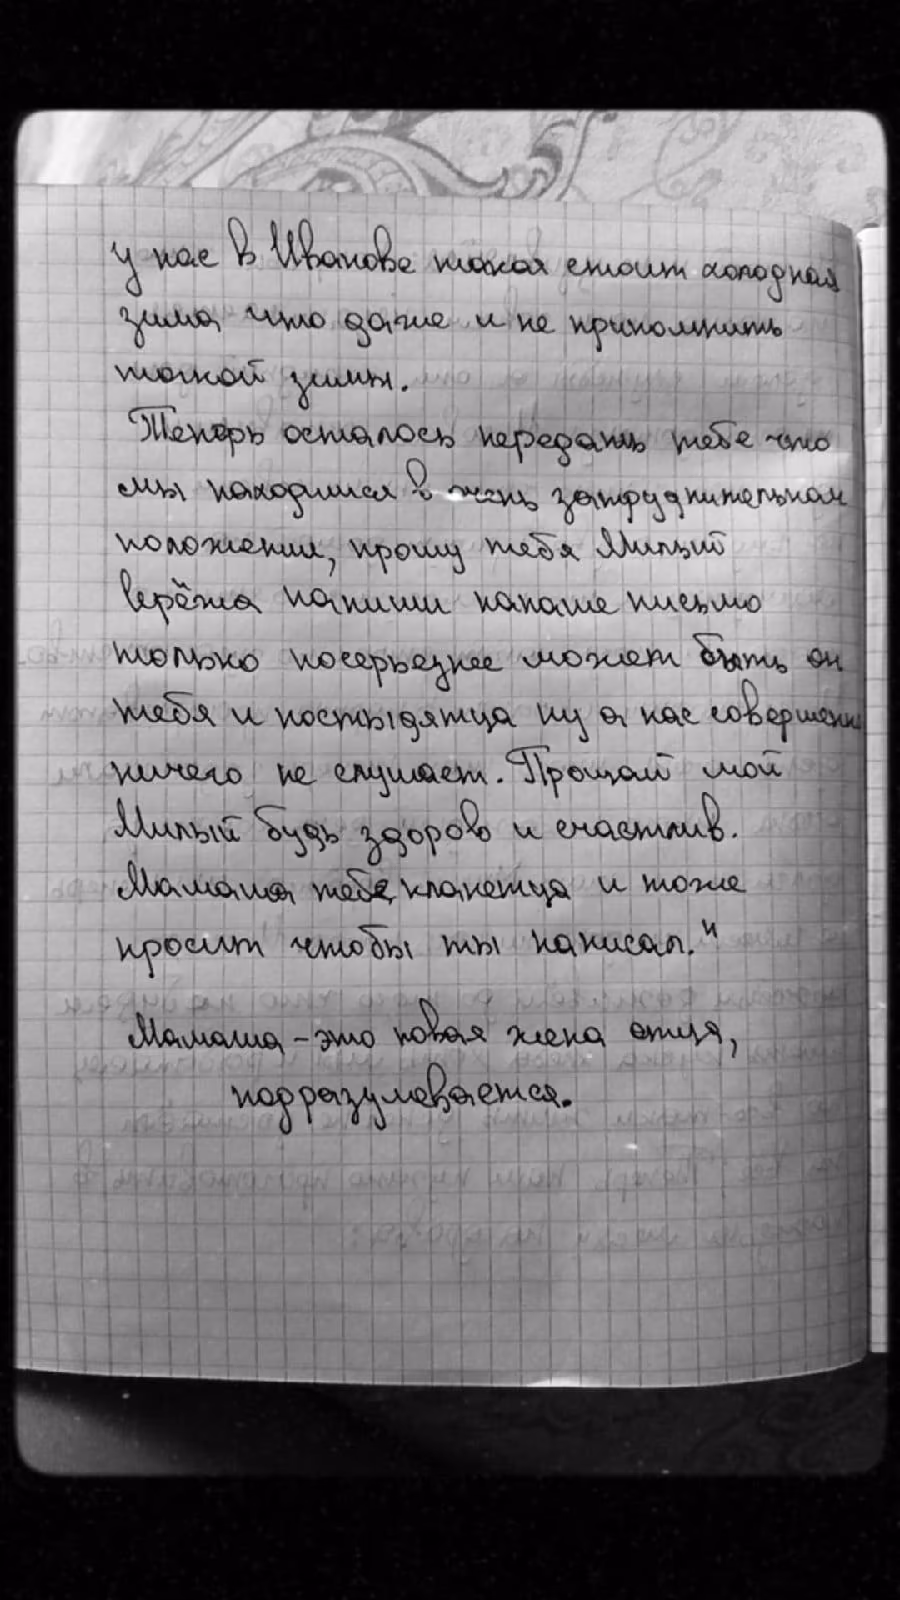 у нас в Иванове такая стоит холодная
зима что даже и не припомнить
такой зимы.
Теперь осталось передать тебе что
мы находимся в очень затруднительном
положении, прошу тебя Милый
Серёжа напиши папаше письмо
только посерьезнее может быть он
тебя и постыдятца ну а нас совершенно
ничего не слушает. Прощай мой
Милый будь здорово и счастлив.
Мамаша тебе кланетца и тоже
просит чтобы ты написал."
Мамаша - это новая жена отца,
подразумевается.